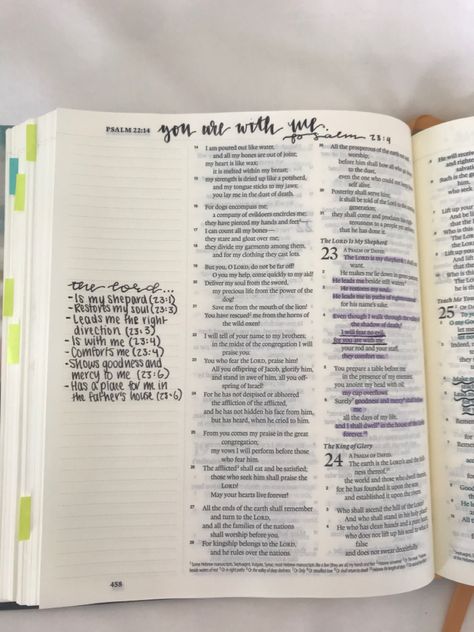 PSALM 22:14
you are with me.
Psalm 23:4
the Lord...
- Is my shepard (23:1)
- Restorts my soul (23:3)
- Leads me the right
direction (23:3)
- Is with me (23:4)
- Comforts me (23:4)
- Shows goodness and
mercy to me (23:6)
- Has a place for me in
the Father's house (23:6)
458
14 I am poured out like water,
and all my bones are out of joint;
my heart is like wax;
it is melted within my breast;
15 my strength is dried up like a potsherd,
and my tongue sticks to my jaws;
you lay me in the dust of death.
16 For dogs encompass me;
a company of evildoers encircles me;
they have pierced my hands and feet
17 I can count all my bones—
they stare and gloat over me;
18 they divide my garments among them,
and for my clothing they cast lots.
19 But you, O LORD, do not be far off!
O you my help, come quickly to my aid!
20 Deliver my soul from the sword,
my precious life from the power of the
dog!
21 Save me from the mouth of the lion!
You have rescued me from the horns of
the wild oxen!
22 I will tell of your name to my brothers;
in the midst of the congregation I will
praise you:
23 You who fear the LORD, praise him!
All you offspring of Jacob, glorify him,
and stand in awe of him, all you off-
spring of Israel!
24 For he has not despised or abhorred
the affliction of the afflicted,
and he has not hidden his face from him,
but has heard, when he cried to him.
25 From you comes my praise in the great
congregation;
my vows I will perform before those
who fear him.
26 The afflicted shall eat and be satisfied;
those who seek him shall praise the
LORD!
May your hearts live forever!
27 All the ends of the earth shall remember
and turn to the LORD,
and all the families of the nations
shall worship before you.
28 For kingship belongs to the LORD,
and he rules over the nations.
29 All the prosperous of the earth eat and
worship;
before him shall bow all who go down
to the dust,
even the one who could not keep him-
self alive.
30 Posterity shall serve him;
it shall be told of the Lord to the coming
generation;
31 they shall come and proclaim his right-
eousness to a people yet unborn,
that he has done it.
The LORD Is My Shepherd
23 A PSALM OF DAVID.
The LORD is my shepherd; I shall not
want.
2 He makes me lie down in green pastures.
He leads me beside still waters.
3 He restores my soul.
He leads me in paths of righteousness
for his name's sake.
4 Even though I walk through the valley of
the shadow of death,
I will fear no evil,
for you are with me;
your rod and your staff,
they comfort me.
5 You prepare a table before me
in the presence of my enemies;
you anoint my head with oil;
my cup overflows.
6 Surely goodness and mercy shall follow
me
all the days of my life,
and I shall dwell in the house of the LORD
forever.
The King of Glory
24 A PSALM OF DAVID.
The earth is the LORD's and the full-
ness thereof,
the world and those who dwell therein,
2 for he has founded it upon the seas
and established it upon the rivers.
3 Who shall ascend the hill of the LORD?
And who shall stand in his holy place?
4 He who has clean hands and a pure heart,
who does not lift up his soul to what is
false
and does not swear deceitfully.
25